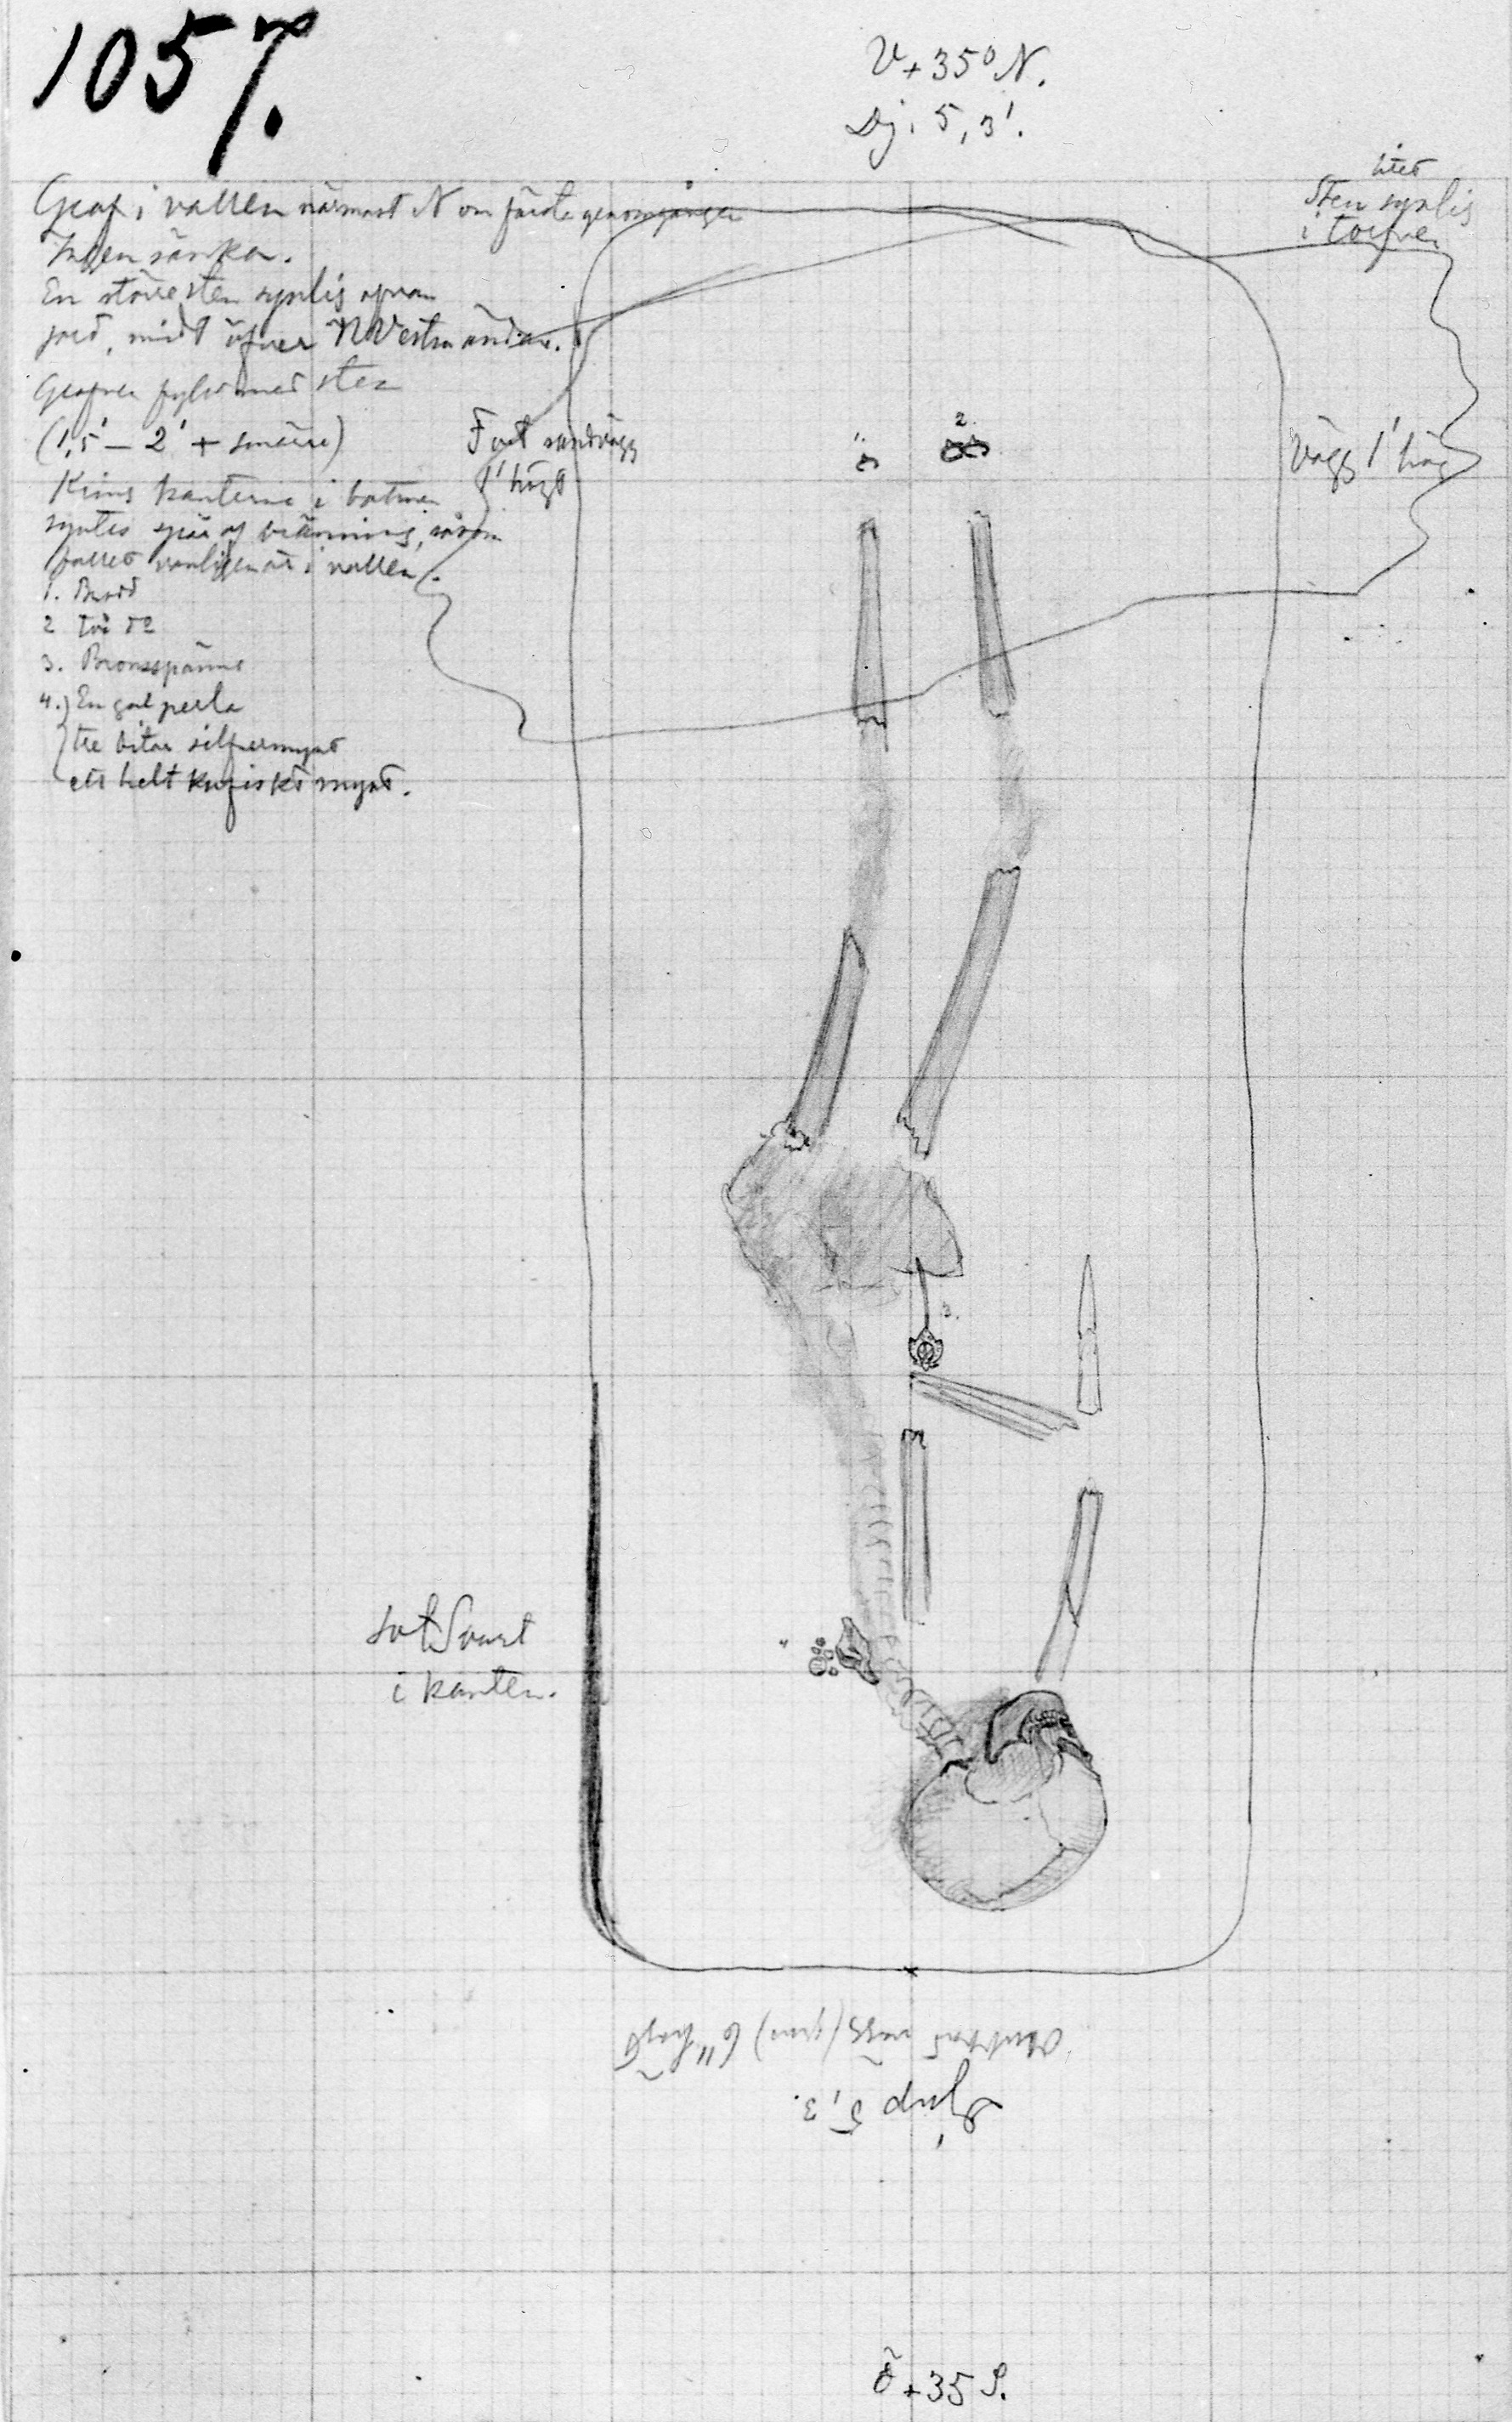 1057.
V + 35° N.
Dj. 5,3'.
litet
Sten synlig
i torfven
Graf i vallen närmast N om första genomgången
Ingen sänka.
En större sten synlig ofvan
jord, midt öfver NVestra ändan.
Grafven fylld med sten
(1,5' – 2' + smärre)
Kring kanterna i botten
syntes spår af bränning, såsom
fallet vanligen är i vallen.
1. Brodd
2 två d:o
3. Bronsspänne
4. En gul perla
tre bitar silfvermynt
ett helt kufiskt mynt.
Fast sandvägg
1' högt
Vägg 1' hög
1.
2.
3.
4
Sot Svart
i kanten.
vägg (grus) 6" högt
Djup 5,3'.
Ö + 35 S.